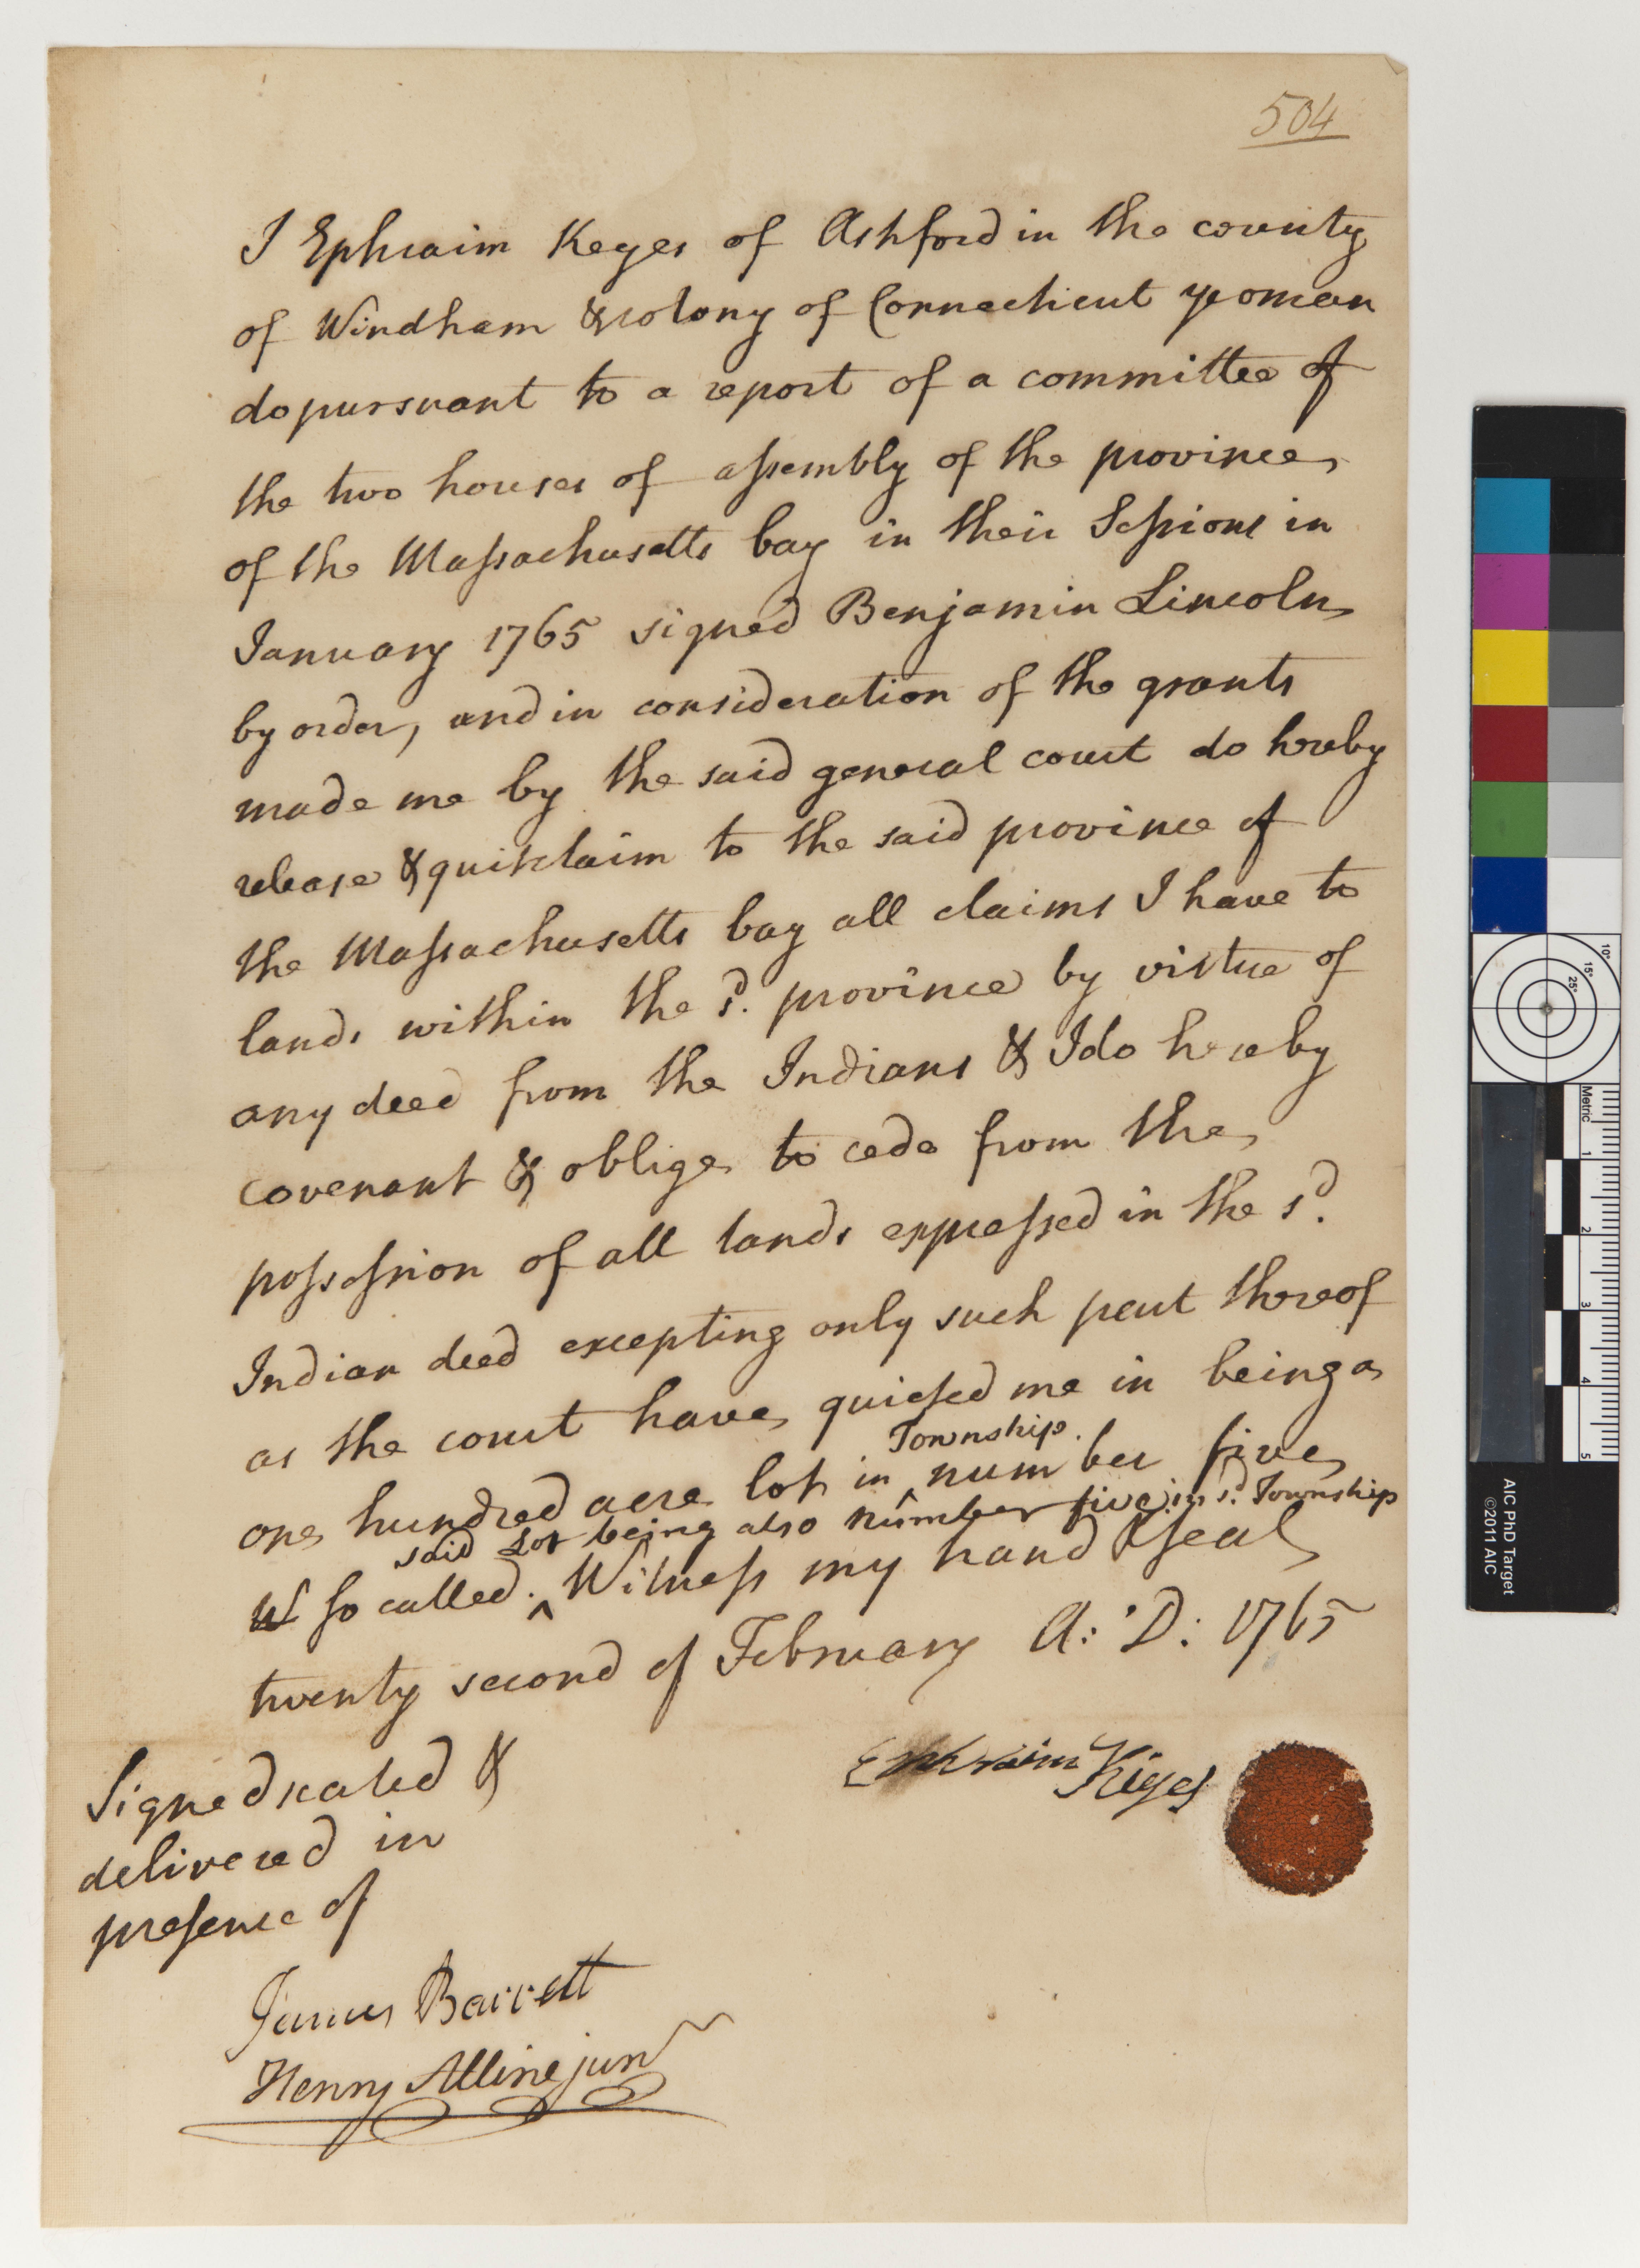 504
I Ephraim Keyes of Ashford in the county
of Windham & colony of Connecticut yeoman
do pursuant to a report of a committee of
the two houses of assembly of the province
of the Massachusetts bay in their Sessions in
January 1765 signed Benjamin Lincoln
by order, and in consideration of the grants
made me by the said general court do hereby
release & quitclaim to the said province of
the Massachusetts bay all claims I have to
lands within the sd. province by virtue of
any deed from the Indians & I do hereby
covenant & oblige to cede from the
possession of all lands expressed in the sd.
Indian deed excepting only such part thereof
as the court have quieted me in being a
Township.
one hundred acre lot in ^ number five
said Lot being also number five in sd. Township
so called. ^ Witness my hand & seal
twenty second of February A: D: 1765
Ephraim Keyes
Signed sealed &
delivered in
presence of
James Barrett
Henry Alline junr
Metric
1
2
3
4
5
10°
15°
25°
AIC PhD Target
©2011 AIC